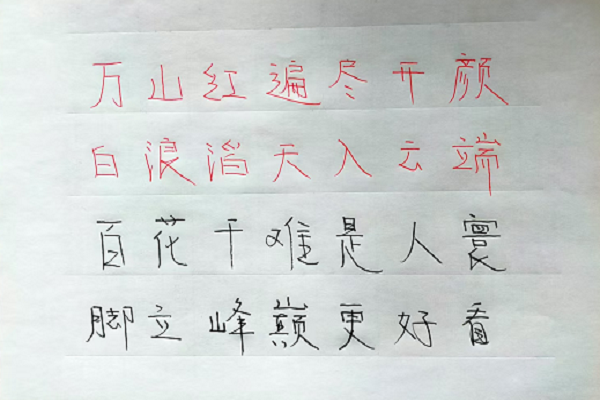 万山红遍尽开颜
白浪滔天入云端
百花干难是人寰
脚立峰巅更好看